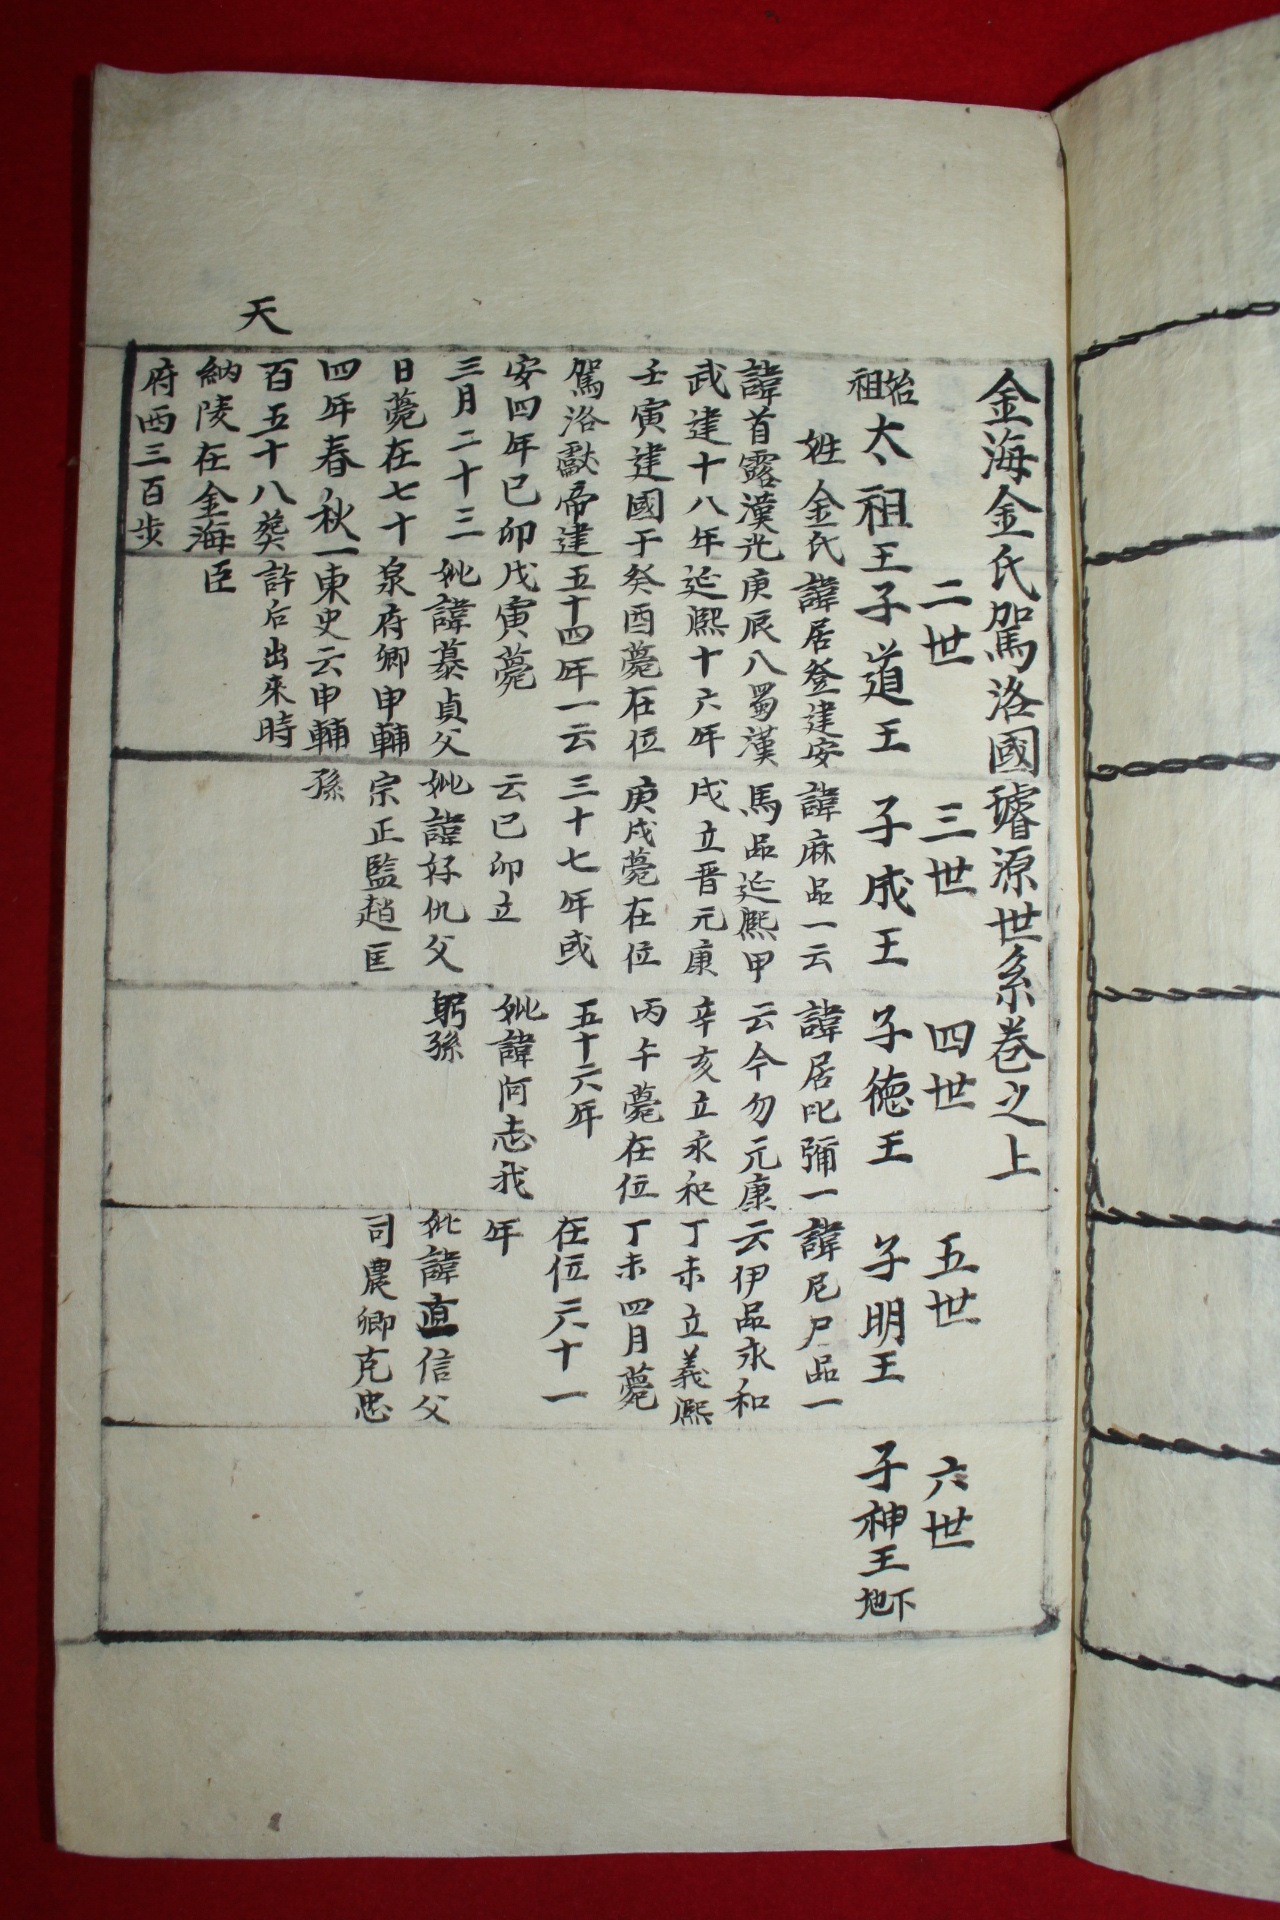 金海金氏駕洛國璿源世系卷之上
二世
三世
四世
五世
六世
始祖
太祖王
姓金氏
諱首露漢光
武建十八年
壬寅建國于
駕洛獻帝建
安四年己卯
三月二十三
日薨在七十
四年春秋一
百五十八葬
納陵在金海
府西三百步
子道王
諱居登建安
庚辰八蜀漢
延熙十六年
癸酉薨在位
五十四年一云
戊寅薨
妣諱慕貞父
泉府卿申輔
東史云申輔
許后出來時
臣
子成王
諱麻品一云
馬品延熙甲
戌立晋元康
庚戌薨在位
三十七年或
云己卯立
妣諱好仇父
宗正監趙匡
孫
子德王
諱居叱彌一
云今勿元康
辛亥立永和
丙午薨在位
五十六年
妣諱阿志我
躬孫
子明王
諱尼尸品一
云伊品永和
丁未立義熙
丁未四月薨
在位六十一
年
妣諱直信父
司農卿克忠
子神王
下地
天